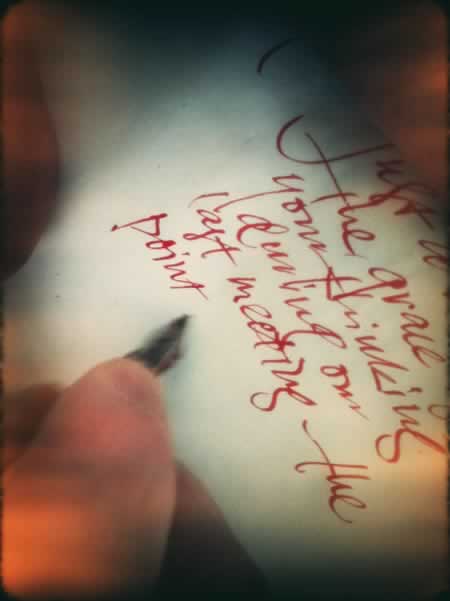 Just a
the grace
your thinking
during our
last meeting - the
point